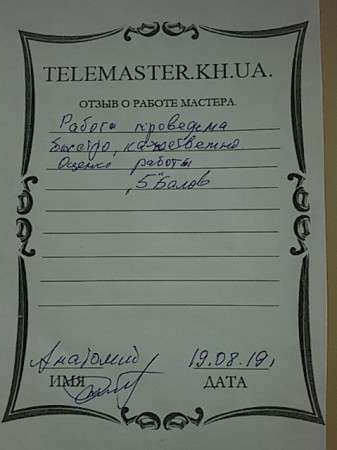 TELEMASTER.KH.UA.
ОТЗЫВ О РАБОТЕ МАСТЕРА.
Работа проведена
быстро, качественно
Оценка работы
„5" Балов
Анатолий 19.08.19,
ИМЯ ДАТА